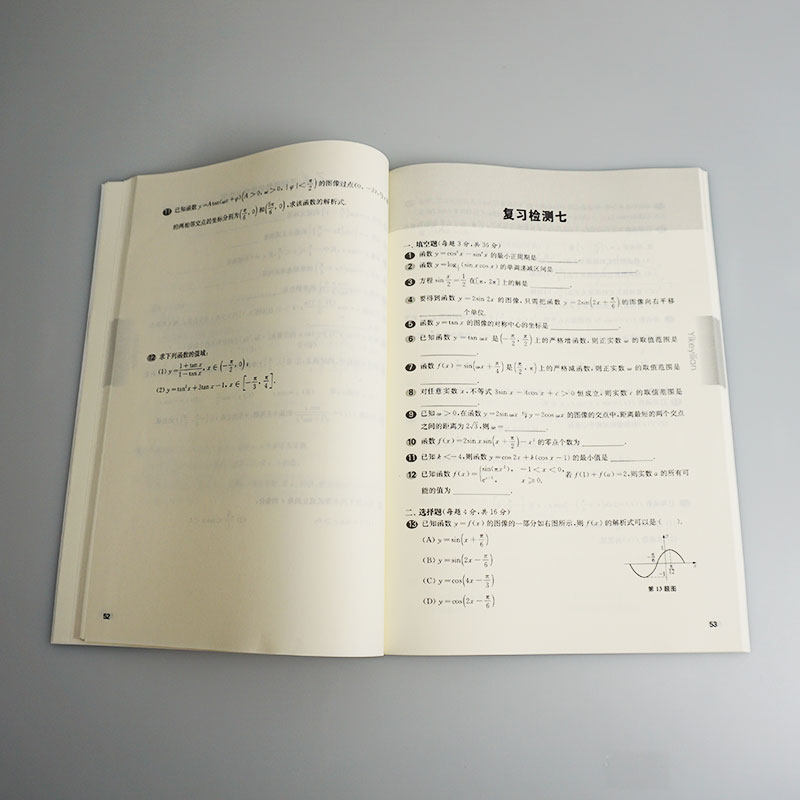 11 已知函数 y=Atan(ωx+φ)(A>0, ω>0, |φ|<π/2)的图像过点(0,
的两相邻交点的坐标分别为(π/6, 0)和(5π/6, 0), 求该函数的解析式.
12 求下列函数的值域:
(1) y=(1+tan x)/(1-tan x), x∈(-π/2, 0);
(2) y=tan²x+3tan x-1, x∈[-π/3, π/4].
52
复习检测七
一、填空题(每题3分,共36分)
1 函数 y=cos⁴x-sin⁴x 的最小正周期是________.
2 函数 y=log(sin x cos x)的单调递减区间是________.
3 方程 sin x/2=1/2 在[π, 2π]上的解是________.
4 要得到函数 y=2sin 2x 的图像,只需把函数 y=2sin(2x+π/6)的图像向右平移
________个单位.
5 函数 y=tan x 的图像的对称中心的坐标是________.
6 已知函数 y=tan ωx 是(-π/2, π/2)上的严格增函数,则正实数 ω 的取值范围是
________.
7 函数 f(x)=sin(ωx+π/4)是(π/2, π)上的严格减函数,则正实数 ω 的取值范围是
________.
8 对任意实数 x,不等式 3sin x-4cos x+c>0 恒成立,则实数 c 的取值范围是
________.
9 已知 ω>0,在函数 y=2sin ωx 与 y=2cos ωx 的图像的交点中,距离最短的两个交点
之间的距离为 2√3,则 ω=________.
10 函数 f(x)=2sin x sin(x+π/2)-x² 的零点个数为________.
11 已知 k<-4,则函数 y=cos 2x+k(cos x-1)的最小值是________.
12 已知函数 f(x)={sin(πx²), -1<x<0, eˣ⁻¹, x≥0, 若 f(1)+f(a)=2,则实数 a 的所有可
能的值为________.
二、选择题(每题4分,共16分)
13 已知函数 y=f(x)的图像的一部分如右图所示,则 f(x)的解析式可以是( ).
(A) y=sin(x+π/6)
(B) y=sin(2x-π/6)
(C) y=cos(4x-π/3)
(D) y=cos(2x-π/6)
y
1
-π/6
O
π/12
x
-1
第13题图
53
Yikeyilian